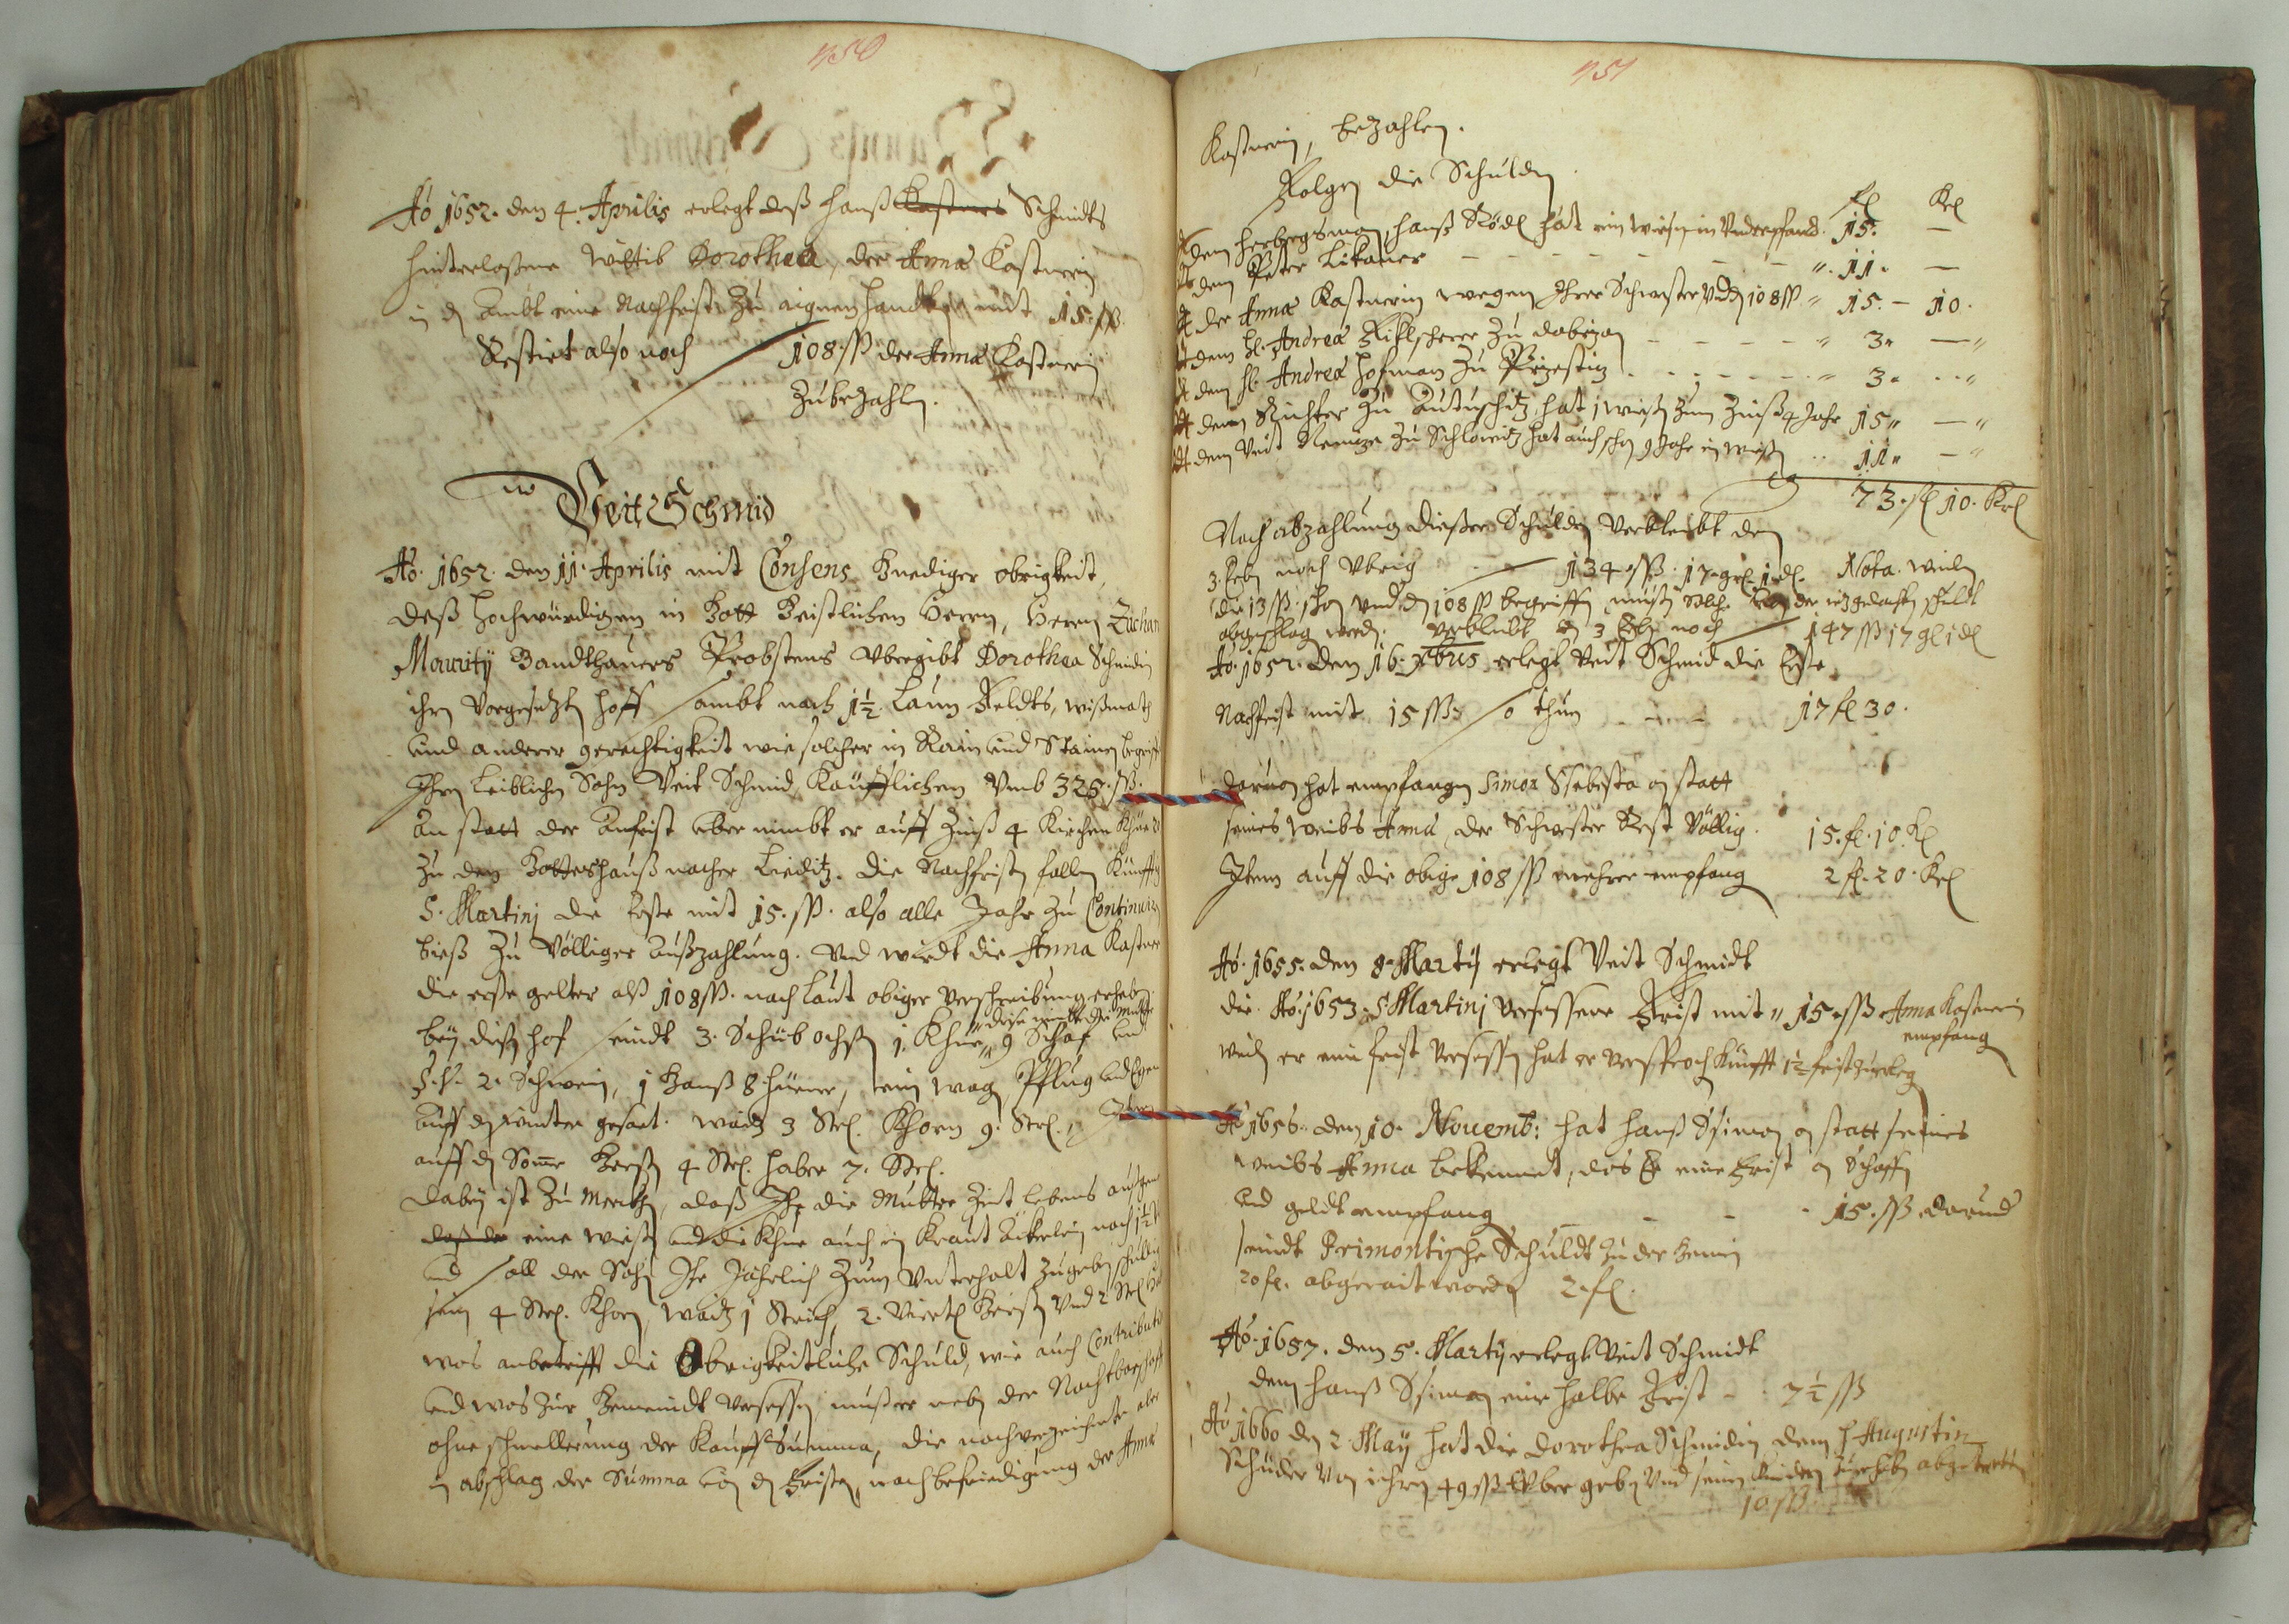 450
Ao 1652. den 4. Aprilis erlegt deß Hanß Kastners Schmidts
hinterlaßene Wittib Dorothea, der Anna Kastnerin
in d Ambt eine Nachfrist zu aignen handten mit 15 ßß.
Restiert also noch 108 ßß der Anna Kastnerin
zubezahlen.
Veit Schmid
Ao. 1652. den 11. Aprilis mit Consens Gnediger obrigkeit,
deß Hochwürdigen in Gott Geistlichen Herrn, Herrn
Maurity Probstens Vbergibt Dorothea Schmidin
ihren Vorgesetzten Hoff sambt nach 1½ Laun Feldts, wißmath
und anderer gerechtigkeit wie solcher in Rain und Stainen begriffen
Ihren leiblichen Sohn Veit Schmid, Käufflichen Vmb 325 ßß.
An statt der Anfrist aber nimbt er auff Zinß 4 Kirchen Khüe
zu dem Gotteshauß nacher Lieditz. Die Nachfristen fallen Künfftig
S. Martinj die Erste mit 15. ßß. also alle Jahr zu Continuirn
bieß zu Völliger Außzahlung. Vnd wirdt die Anna Kastnerin
die erste gelter alß 108 ßß. nach laut obiger Verschreibung erheben.
bey disen hof seindt 3. Schub ochsen 1. Khue, 9 Schaf und
2. Schwein, 1 Ganß 8 hüener, ein wagen Pflug und Egen
Auff den winter gesaet. waitz 3 Str. Khorn 9. Str. Item
auff den Sommer Gersten 4 Str. haber 7. Str.
Dabey ist zu Merckhen, daß Ihr die Mutter Zeit lebens
daß der eine wießen und die Khue auch ein Kraut Äckerlein nach 1½
und soll der Sohn Ihr Jährlich zum Vnterhalt zugeben schuldig
sein 4 Str. Khorn, waitz 1 Strich, 2. Viertl Gersten Vnd 2 Str.
was anbetrifft die Obrigkeitliche Schuld, wie auch Contribution
und was zur Gemeindt Versessen, muß er neben der Nachtbarschafft
ohne schmellerung der Kauff Summa, die nachverzeichnete aber
in abschlag der Summa von den Fristen, nach befriedigung der Anna
451
Kastnerin, bezahlen.
Folgen die Schulden
fl Krl
dem herbrigsman, Hanß Ködl hat ein wiesen in Vnderpfand. 15. —
dem Peter Litaner — 11. —
der Anna Kastnerin wegen Ihrer Schwester Vnd 108 ßß 15. — 10.
dem H. Andrea zu 3. —
dem H. Andrea Hofman zu 3.
dem Richter zu hat 1 wießen zum Zinß 4 Jahr 15 —
dem Veit zu Schlowitz hat auch schon 9 Jahr ein wießen 11 —
73. fl 10. Krl
Nach abzahlung dießer Schulden Verbleibt den
3. Erben noch Vbrig 134 ßß. 17 gr. 1 dl. Nota. weilen
die 13 ßß. schon Vnd den 108 ßß begriffen, müßen
abgeschlagen werden. Verbleibt den 3 Erben noch 147 ßß 17 gl 1 dl
Ao. 1652. den 16. Xbris erlegt Veit Schmid die Erste
Nachfrist mit 15 ßß. so thun 17 fl 30.
daruon hat empfangen Simon an statt
seines weibs Anna, der Schwester Rest Völlig. 15. fl. 10. Krl
Item auff die obige 108 ßß mehrer empfangen 2 fl. 20. Krl
Ao. 1655. den 8. Marty erlegt Veit Schmidt
die Ao. 1653. S. Martinj Versessene Frist mit 15 ßß Anna Kastnerin
empfangen
weil er eine frist Versessen hat er versprochen künfft 1½ frist zuerlegen
Ao 1656. den 10. Nouemb: hat Hanß Ssimon an statt seines
weibs Anna bekennet, das Er eine Frist an Schaffen
und geldt empfangen — 15. ßß darund
seindt Primontische Schuldt zu der
20 fl. abgeraitt worden 2. fl.
Ao. 1657. den 5. Marty erlegt Veit Schmidt
dem Hanß Ssimon eine halbe Frist — 7½ ßß
Ao 1660 den 2. May hat die Dorothea Schmidin dem H Augustin
Schuder Von ihren 49 ßß Vbergeben Vnd abgetretten
10 ßß